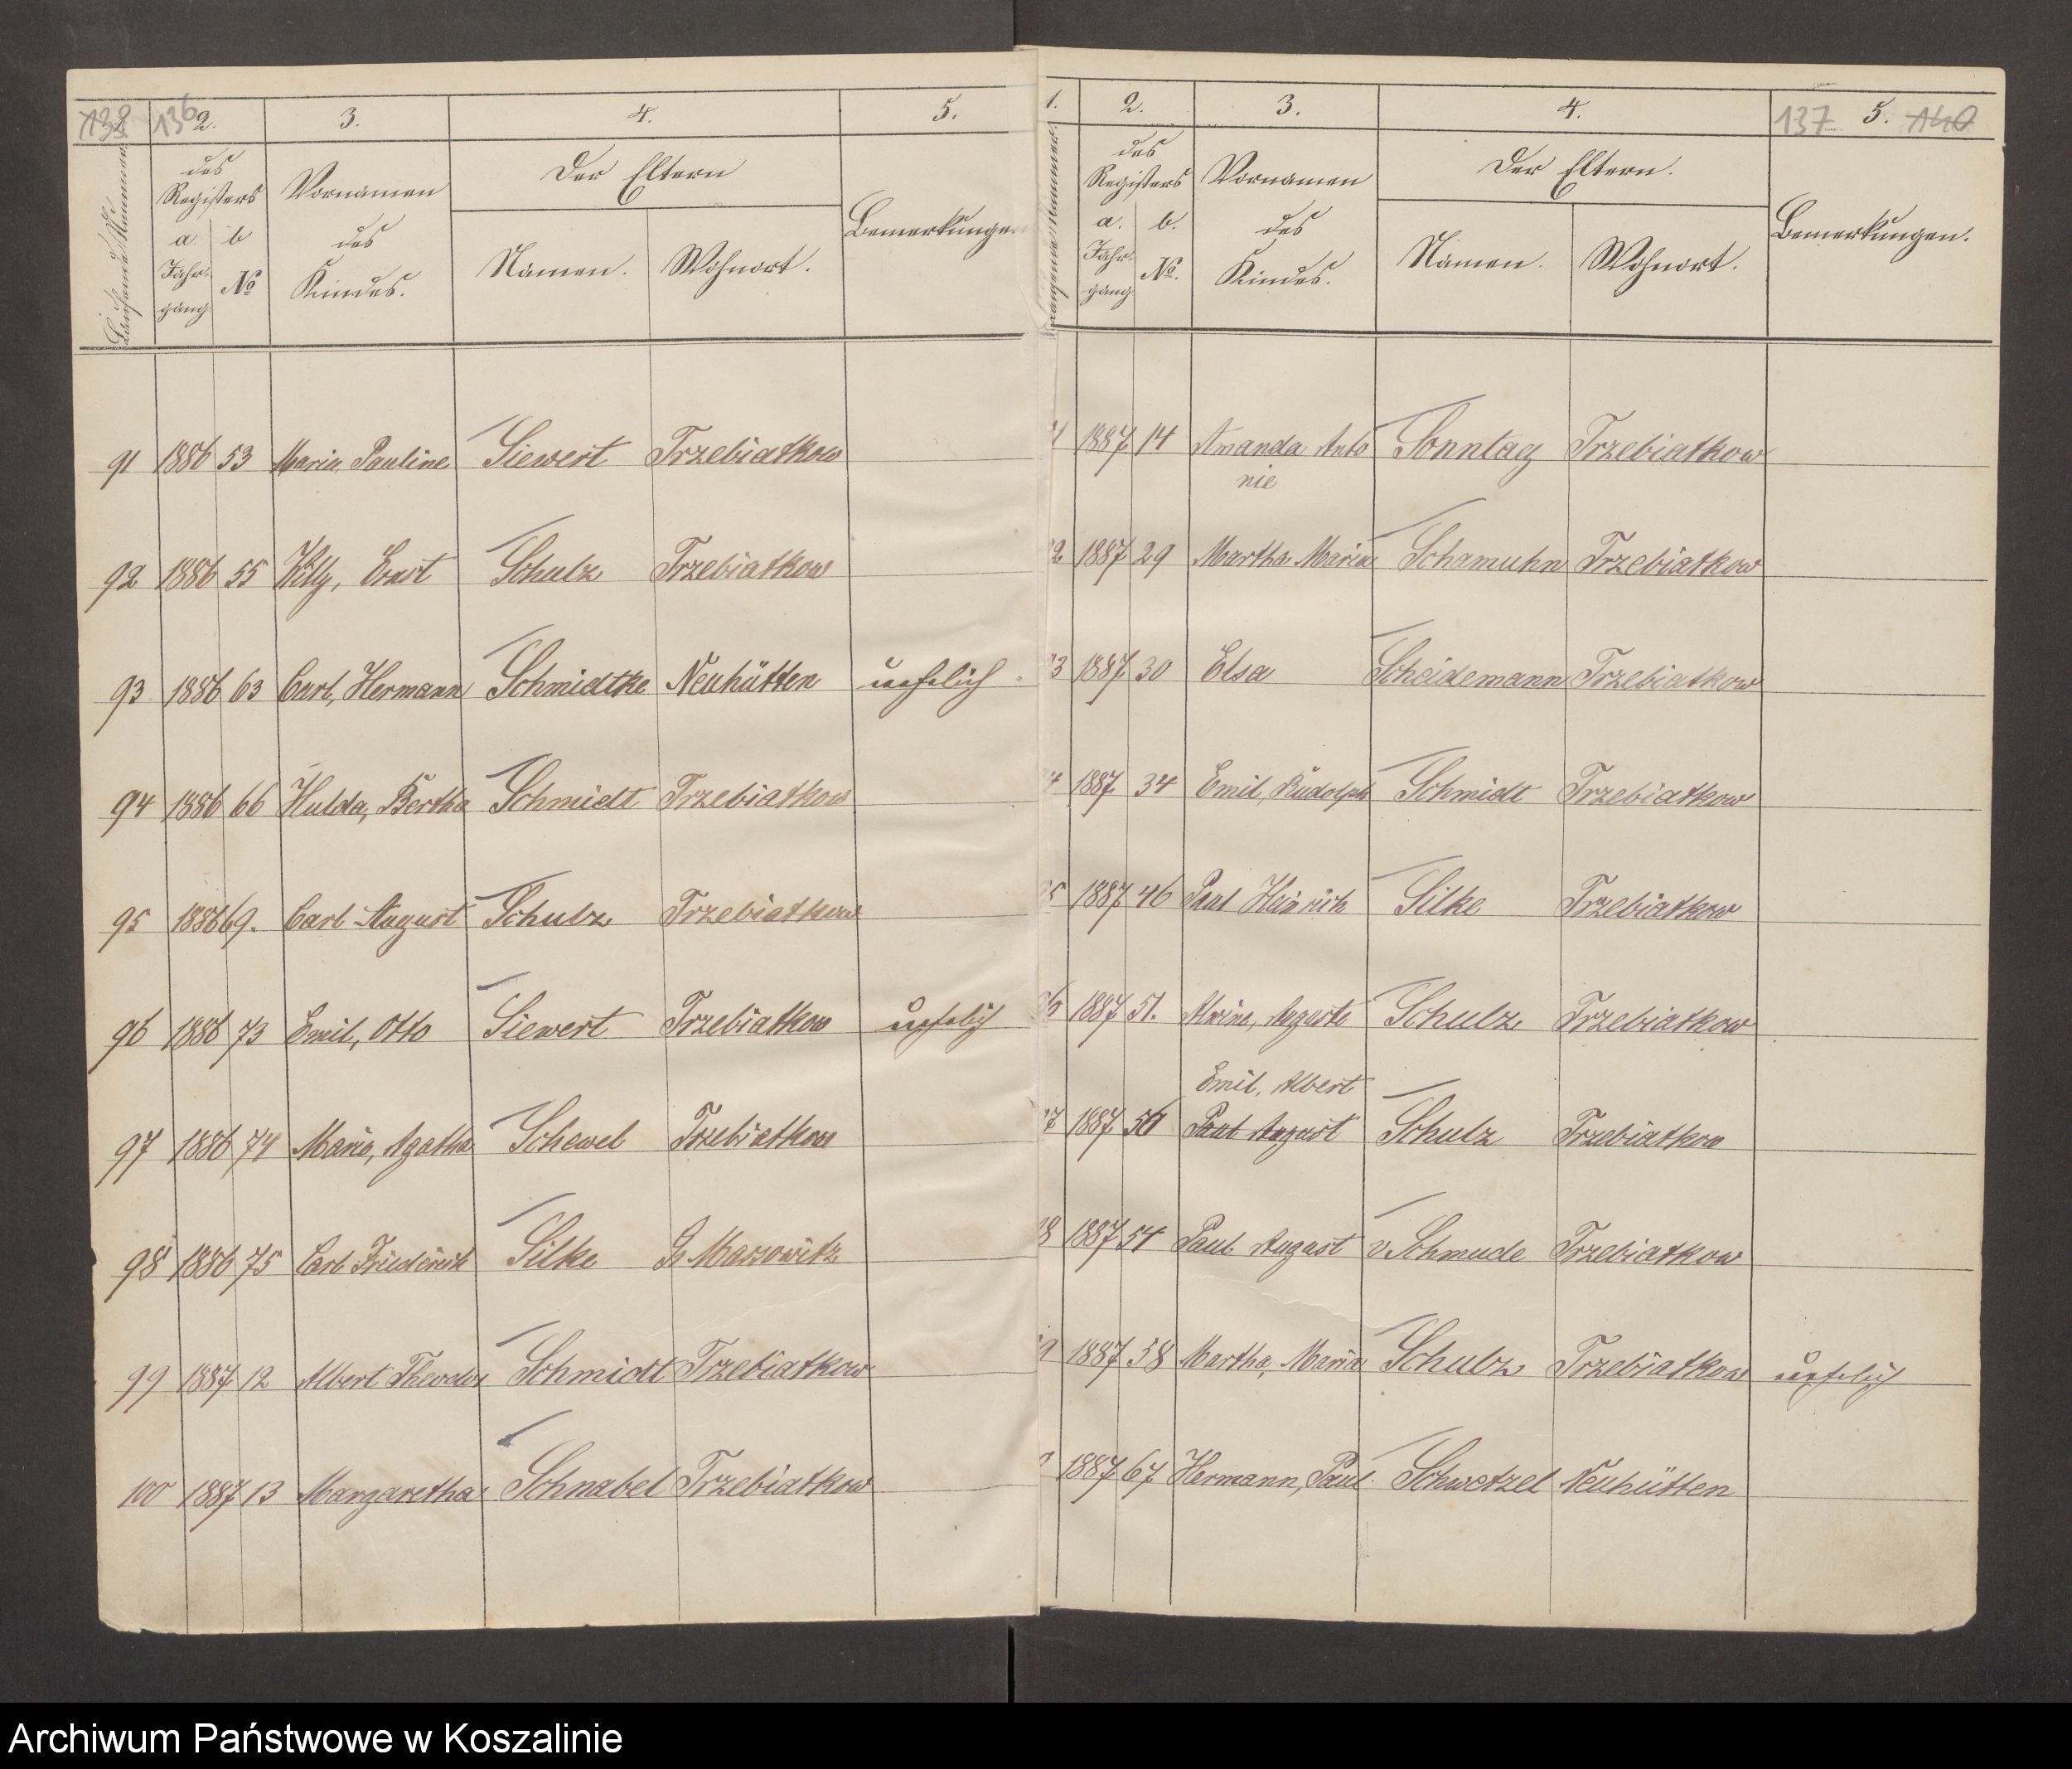 139 136 2. 3. 4. 5.
Laufende Nummer
des Registers
a. Jahrgang
b №
Vornamen des Kindes.
Der Eltern
Namen. Wohnort.
Bemerkungen
91 1886 53 Maria Pauline Siewert Trzebiatkow
92 1886 55 Willy, Ernst Schulz Trzebiatkow
93 1886 63 Carl, Hermann Schmidtke Neuhütten unehelich
94 1886 66 Hulda, Bertha Schmidt Trzebiatkow
95 1886 69. Carl August Schulz Trzebiatkow
96 1886 73 Emil, Otto Siewert Trzebiatkow unehelich
97 1886 74 Maria, Agatha Schewel Trzebiatkow
98 1886 75 Carl Friederich Silke Gr Massowitz
99 1887 12 Albert Theodor Schmidt Trzebiatkow
100 1887 13 Margaretha Schnabel Trzebiatkow
1. 2. 3. 4. 137 5. 140
Laufende Nummer.
des Registers
a. Jahrgang
b. №.
Vornamen des Kindes.
Der Eltern.
Namen. Wohnort.
Bemerkungen.
1 1887 14 Amanda Anto Sonntag Trzebiatkow
nie
2 1887 29 Martha Maria Schamuhn Trzebiatkow
3 1887 30 Elsa Scheidemann Trzebiatkow
4 1887 34 Emil, Rudolph Schmidt Trzebiatkow
5 1887 46 Paul Heinrich Silke Trzebiatkow
6 1887 51. Alwine, Auguste Schulz Trzebiatkow
Emil, Albert
7 1887 56 Paul August Schulz Trzebiatkow
8 1887 54 Paul August v Schmude Trzebiatkow
9 1887 58 Martha, Maria Schulz Trzebiatkow unehelich
1887 67 Hermann, Paul Schwetzel Neuhütten
Archiwum Państwowe w Koszalinie